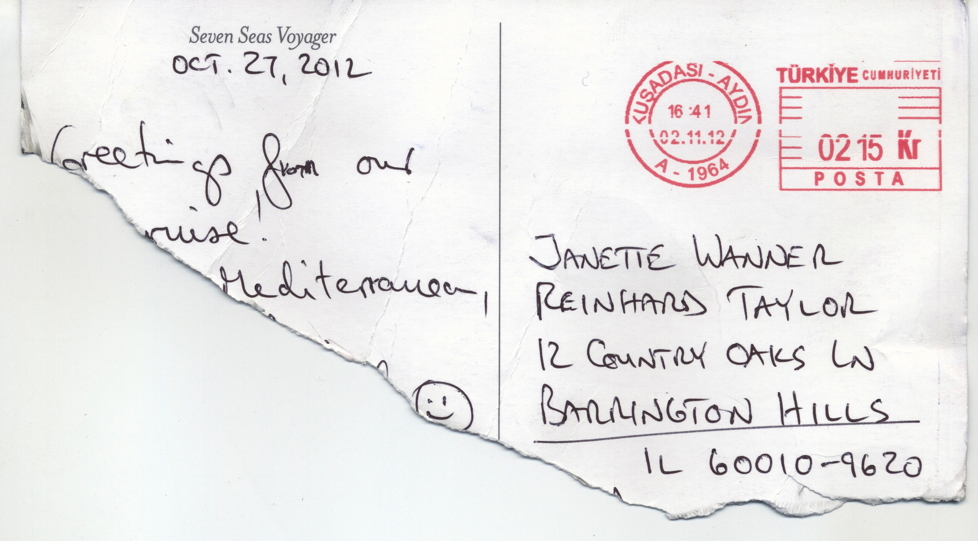 Seven Seas Voyager
OCT. 27, 2012
Greetings from our
ruise!
Mediterranean,
KUŞADASI - AYDIN
16 41
02.11.12
A - 1964
TÜRKİYE CUMHURİYETİ
02 15 Kr
POSTA
JANETTE WANNER
REINHARD TAYLOR
12 COUNTRY OAKS LN
BARRINGTON HILLS
IL 60010-9620